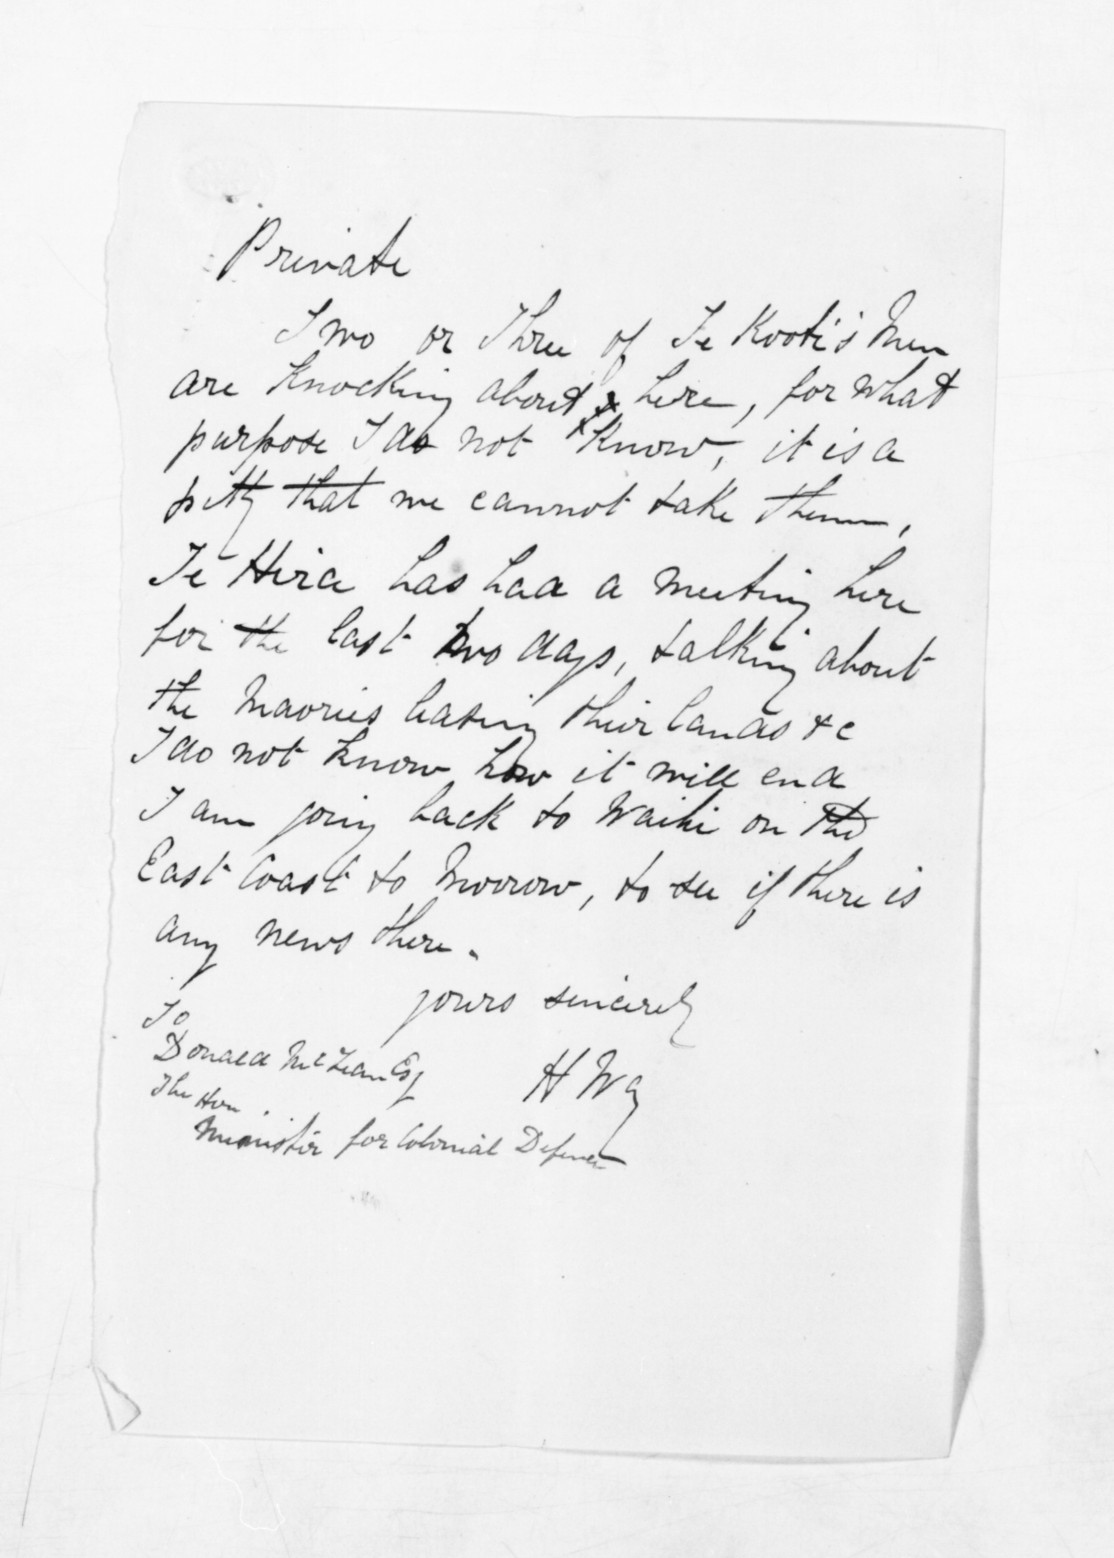 Private
Two or Three of Te Kooti's Men
are Knocking about here, for what
purpose I do not Know, it is a
pitty that we cannot take them,
Te Hira has had a meeting here
for the last two days, talking about
the Maories leasing their lands &c
I do not know how it will end
I am going back to Waihi on the
East Coast to Morrow, to see if there is
any news there.
yours sincerely
To
Donald McLean Esq
H W
The Hon
Minister for Colonial Defence